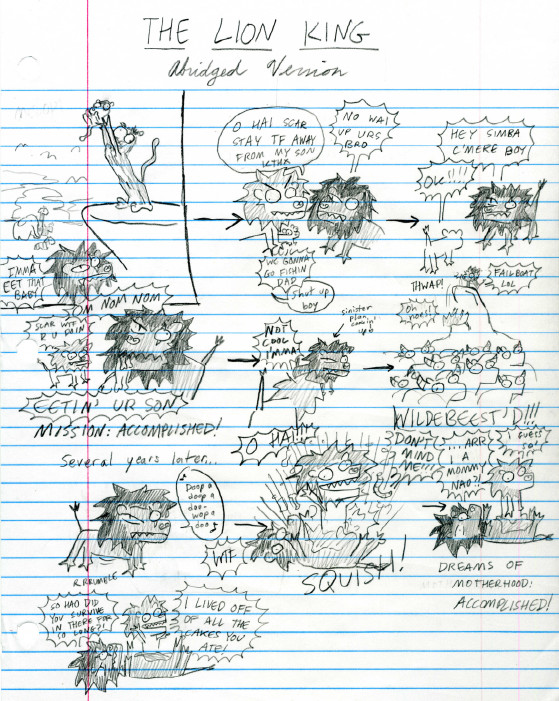 THE LION KING
Abridged Version
O HAI SCAR
STAY TF AWAY
FROM MY SON
KTHX
NO WAI
UP URS
BRO
HEY SIMBA
C'MERE BOY
OK!!!!
WE GONNA
GO FISHIN
DAD
Shut up
boy
IMMA
EET THAT
BABY!
OM NOM NOM
SCAR WTF
R U DOIN
EETIN' UR SON
MISSION: ACCOMPLISHED!
NOT
COOL
IMMA
sinister
plan
THWAP!
FAILBOAT
LOL
Oh
noes!!
WILDEBEEST'D!!!
Several years later...
Doop a
doop a
doo-
wop a
doo
O HAI
DON'T
MIND
ME!!!
WTF
SQUISH!
...ARR
I A
MOMMY
NAO?!
I
GUESS
SO!
DREAMS OF
MOTHERHOOD:
ACCOMPLISHED!
R-RRUMBLE
SO HAO DID
YOU SURVIVE
IN THERE FOR
SO LONG?!
I LIVED OFF
OF ALL THE
CAKES YOU
ATE!